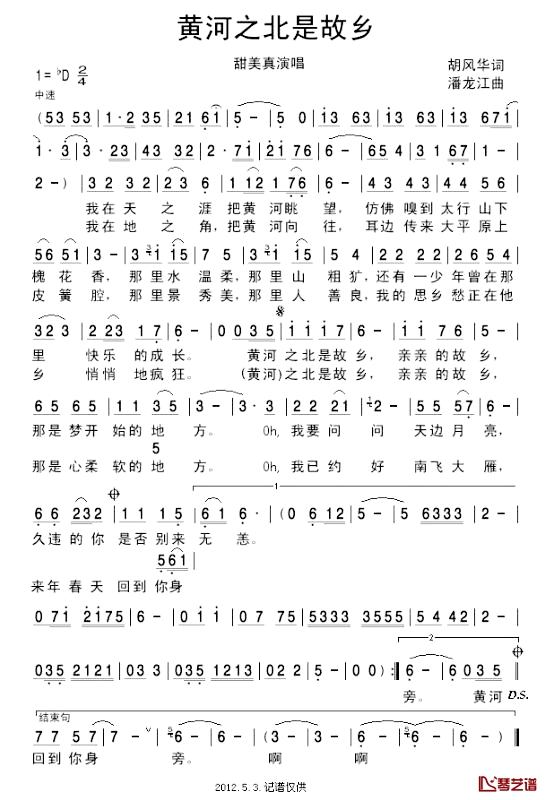 黄河之北是故乡
甜美真演唱
胡风华词
1=♭D 2/4
潘龙江曲
中速
(53 53 | 1·2 35 | 21 61 | 5 - | 5 0 | 13 63 | 13 63 | 13 671 |
1·3 | 3·23 | 43 32 | 2·71 | 2171 76 | 6 - | 65 4 | 3 1 67 | 1 - |
2 - ) | 3 2 3 2 | 2 3 6 | 1 2 1 76 | 6 - | 3 5 6 3 | 4 4 5 6 |
我在 天 之 涯 把 黄 河眺 望, 仿佛 嗅到 太行 山下
我在 地 之 角, 把黄 河向 往, 耳边 传来 大平 原上
槐 花 香, 那里水 温柔, 那里 山 粗 犷, 还有 一少 年曾在那
皮 簧 腔, 那里景 秀美, 那里 人 善良, 我的 思乡 愁正在他
3 2 3 | 2 23 1 7 | 6 - | 0 0 3 5 | 1 1 1 7 | 6 - | 1 1 1 7 | 6 - |
里 快乐 的成 长。 黄河 之北是故 乡, 亲亲 的故 乡,
乡 悄悄 地疯 狂。 (黄河)之北是故 乡, 亲亲 的故 乡,
6 5 6 5 | 1 2 3 5 | 3 - | 3 - | 3 2 2 21 | 2 - | 5 5 57 | 6 - |
那是 梦开 始的 地 方。 Oh, 我要 问 问 天边 月 亮,
5
那是 心柔 软的 地 方。 Oh, 我已 约 好 南飞 大 雁,
1
6 6 232 | 1 1 1 5 | 6 1 6 - | (0 6 12 | 5 - | 5 6333 | 3 - | 2 - |
久违 的你 是否 别来 无 恙。
561
来年 春 天 回到 你身
0 71 2175 | 6 - | 0 1 1 | 0 1 | 0 7 75 | 5333 3555 | 5 4 42 | 0 2 |
2
035 2121 | 03 3 | 035 1213 | 02 2 | 5 - | 0 0) :| 6 - | 6 035 ||
旁。 黄河 D.S.
结束句
回到 你身 旁。 啊 啊
2012.5.3.记谱仅供
琴艺谱